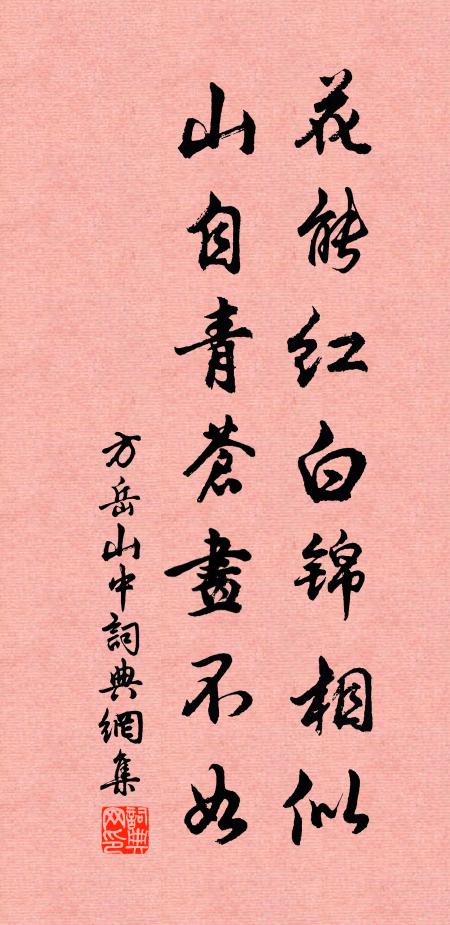 花能红白锦相似
山自青苍畫不如
方岳山中詞典網集
詞典网印